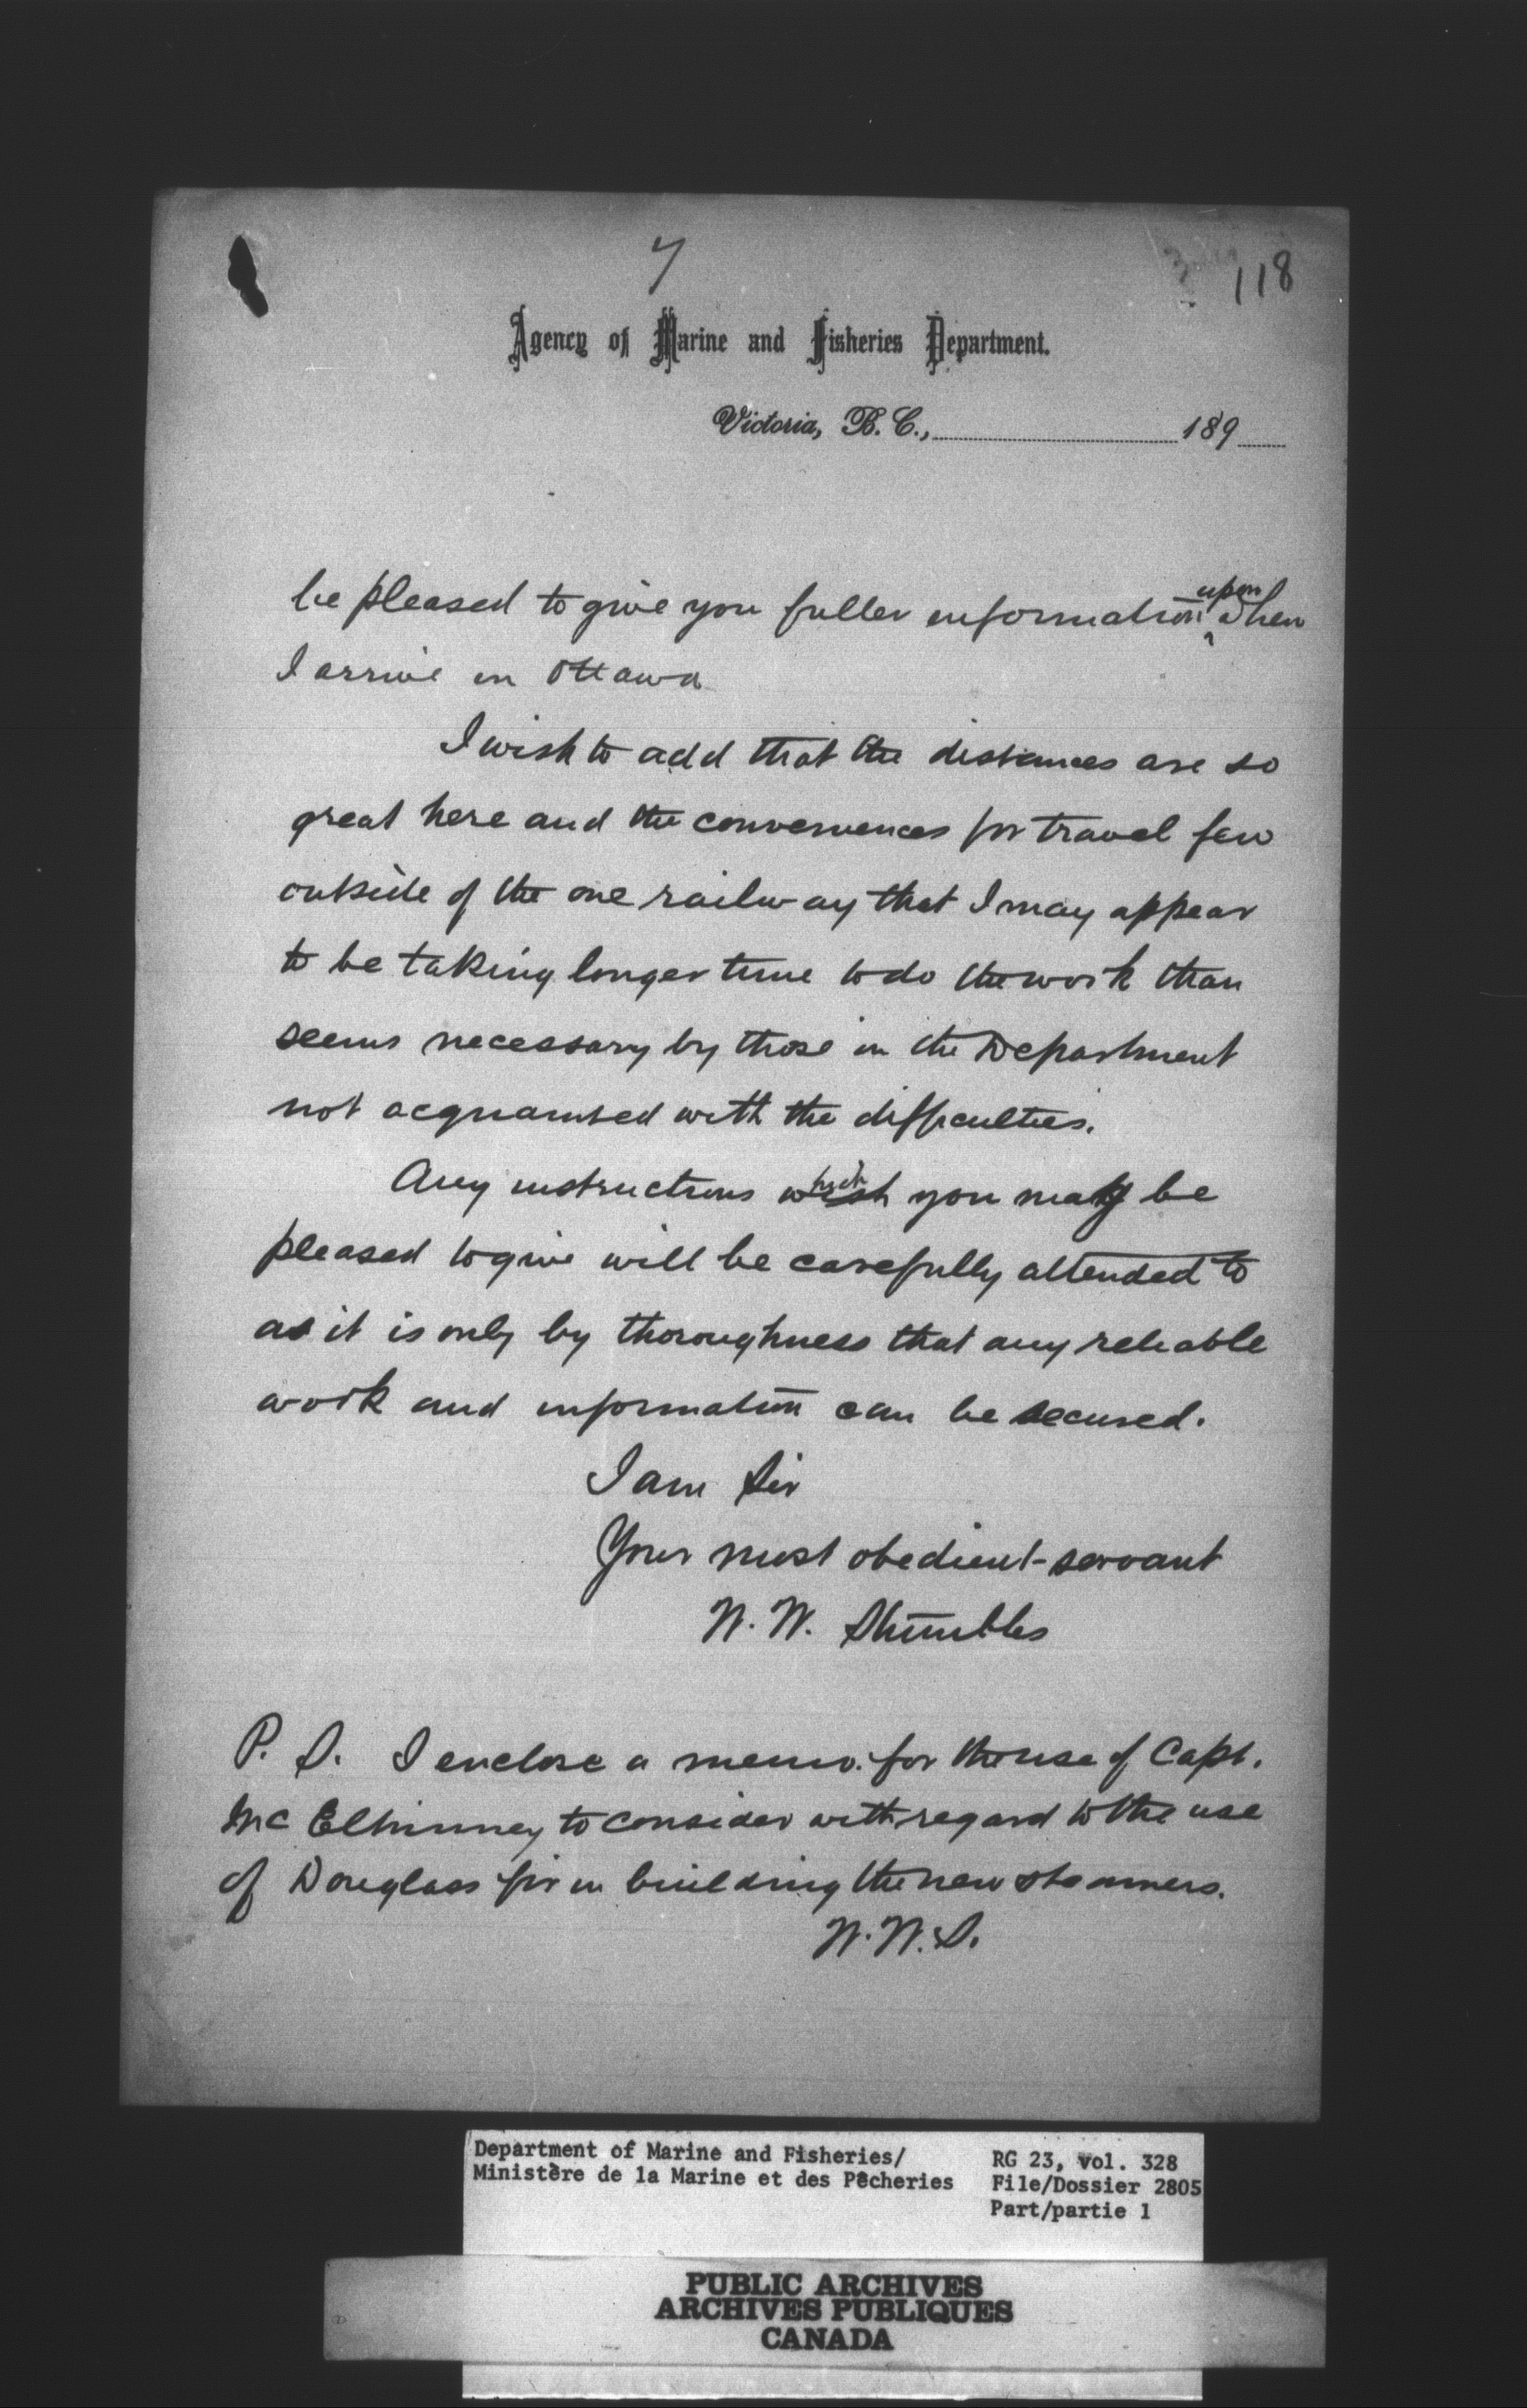 7
118
Agency of Marine and Fisheries Department.
Victoria, B. C., 189
upon
be pleased to give you fuller information when
I arrive in Ottawa
I wish to add that the distances are so
great here and the conveniences for travel few
outside of the one railway that I may appear
to be taking longer time to do the work than
seems necessary by those in the Department
not acquainted with the difficulties.
Any instructions which you may be
pleased to give will be carefully attended to
as it is only by thoroughness that any reliable
work and information can be secured.
I am Sir
Your most obedient servant
N. W.
P. S. I enclose a memo. for the use of Capt.
McElhinney to consider with regard to the use
of Douglass fir in building the new steamers.
N. W. S.
Department of Marine and Fisheries/ RG 23, vol. 328
Ministère de la Marine et des Pêcheries File/Dossier 2805
Part/partie 1
PUBLIC ARCHIVES
ARCHIVES PUBLIQUES
CANADA